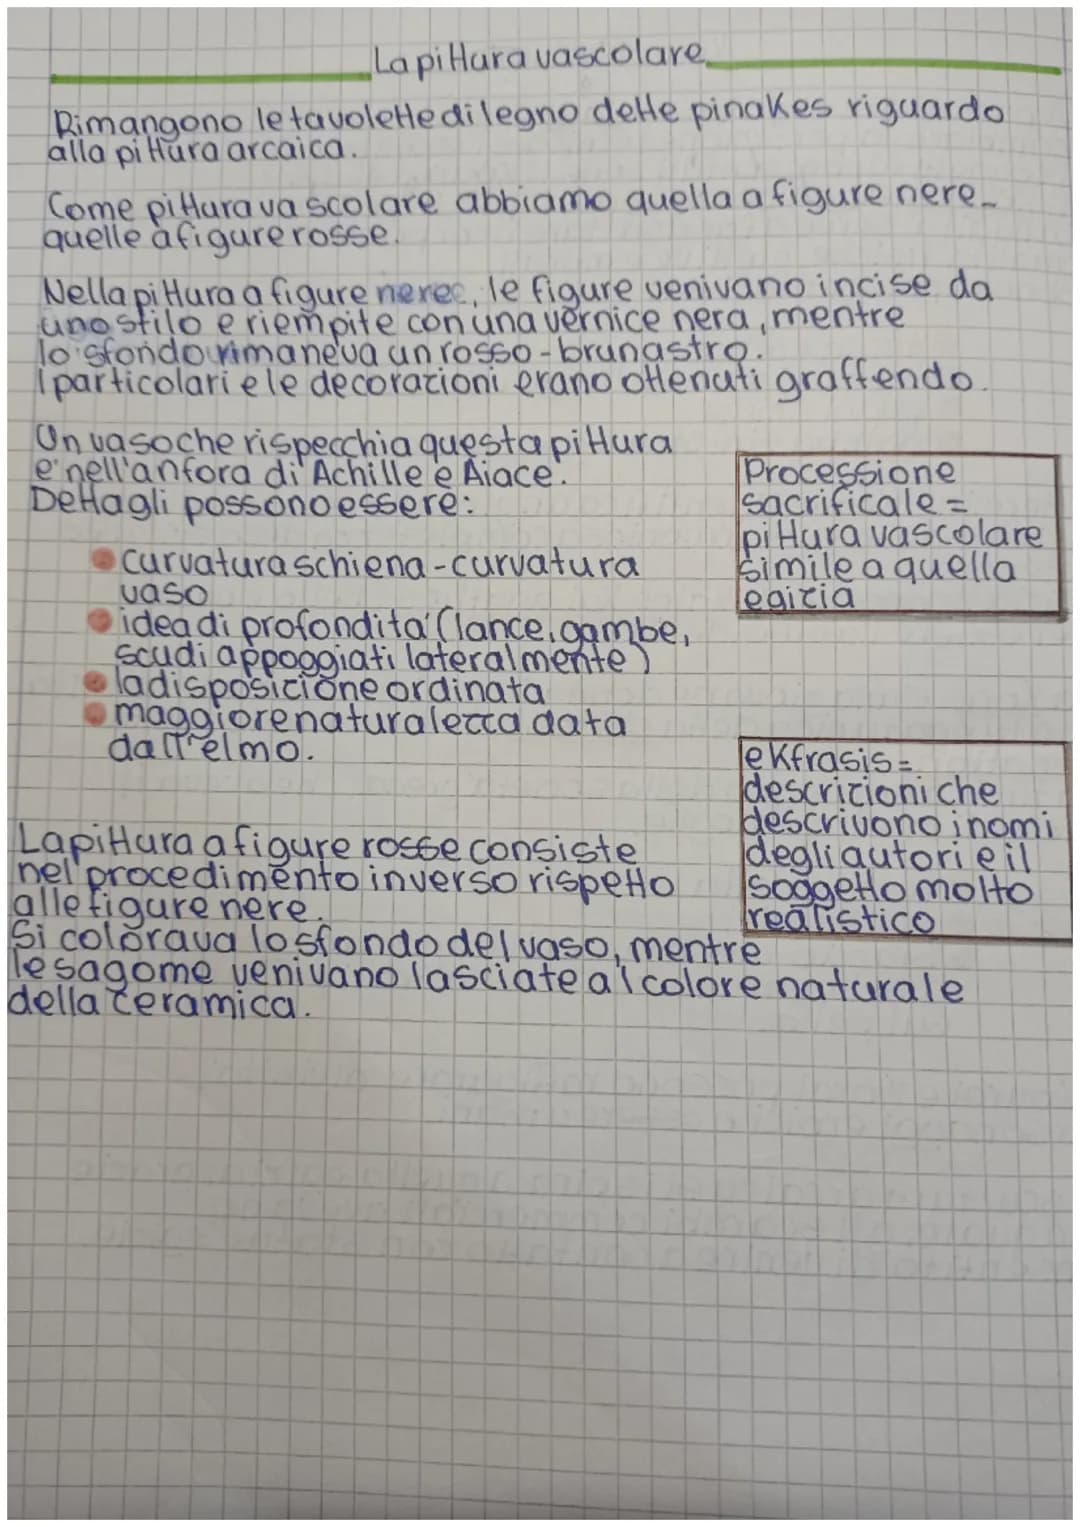 La pittura vascolare
Rimangono le tavolette di legno dette pinakes riguardo
alla pittura arcaica.
Come pittura vascolare abbiamo quella a figure nere -
quelle a figure rosse.
Nella pittura a figure nere, le figure venivano incise da
uno stilo e riempite con una vernice nera, mentre
lo sfondo rimaneva un rosso-brunastro.
I particolari e le decorazioni erano ottenuti graffendo.
Un vaso che rispecchia questa pittura
e' nell'anfora di Achille e Aiace.
Dettagli possono essere:
curvatura schiena-curvatura
vaso
idea di profondita' (lance, gambe,
scudi appoggiati lateralmente)
la disposizione ordinata
maggiore naturalezza data
dall'elmo.
Processione
sacrificale =
pittura vascolare
simile a quella
egizia
ekfrasis =
descrizioni che
descrivono i nomi
degli autori e il
soggetto molto
realistico
La pittura a figure rosse consiste
nel procedimento inverso rispetto
alle figure nere.
Si colorava lo sfondo del vaso, mentre
le sagome venivano lasciate al colore naturale
della ceramica.